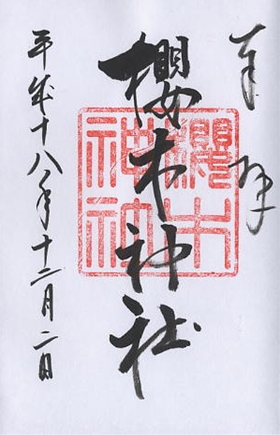 奉拝
櫻木神社
平成十八年十二月二日